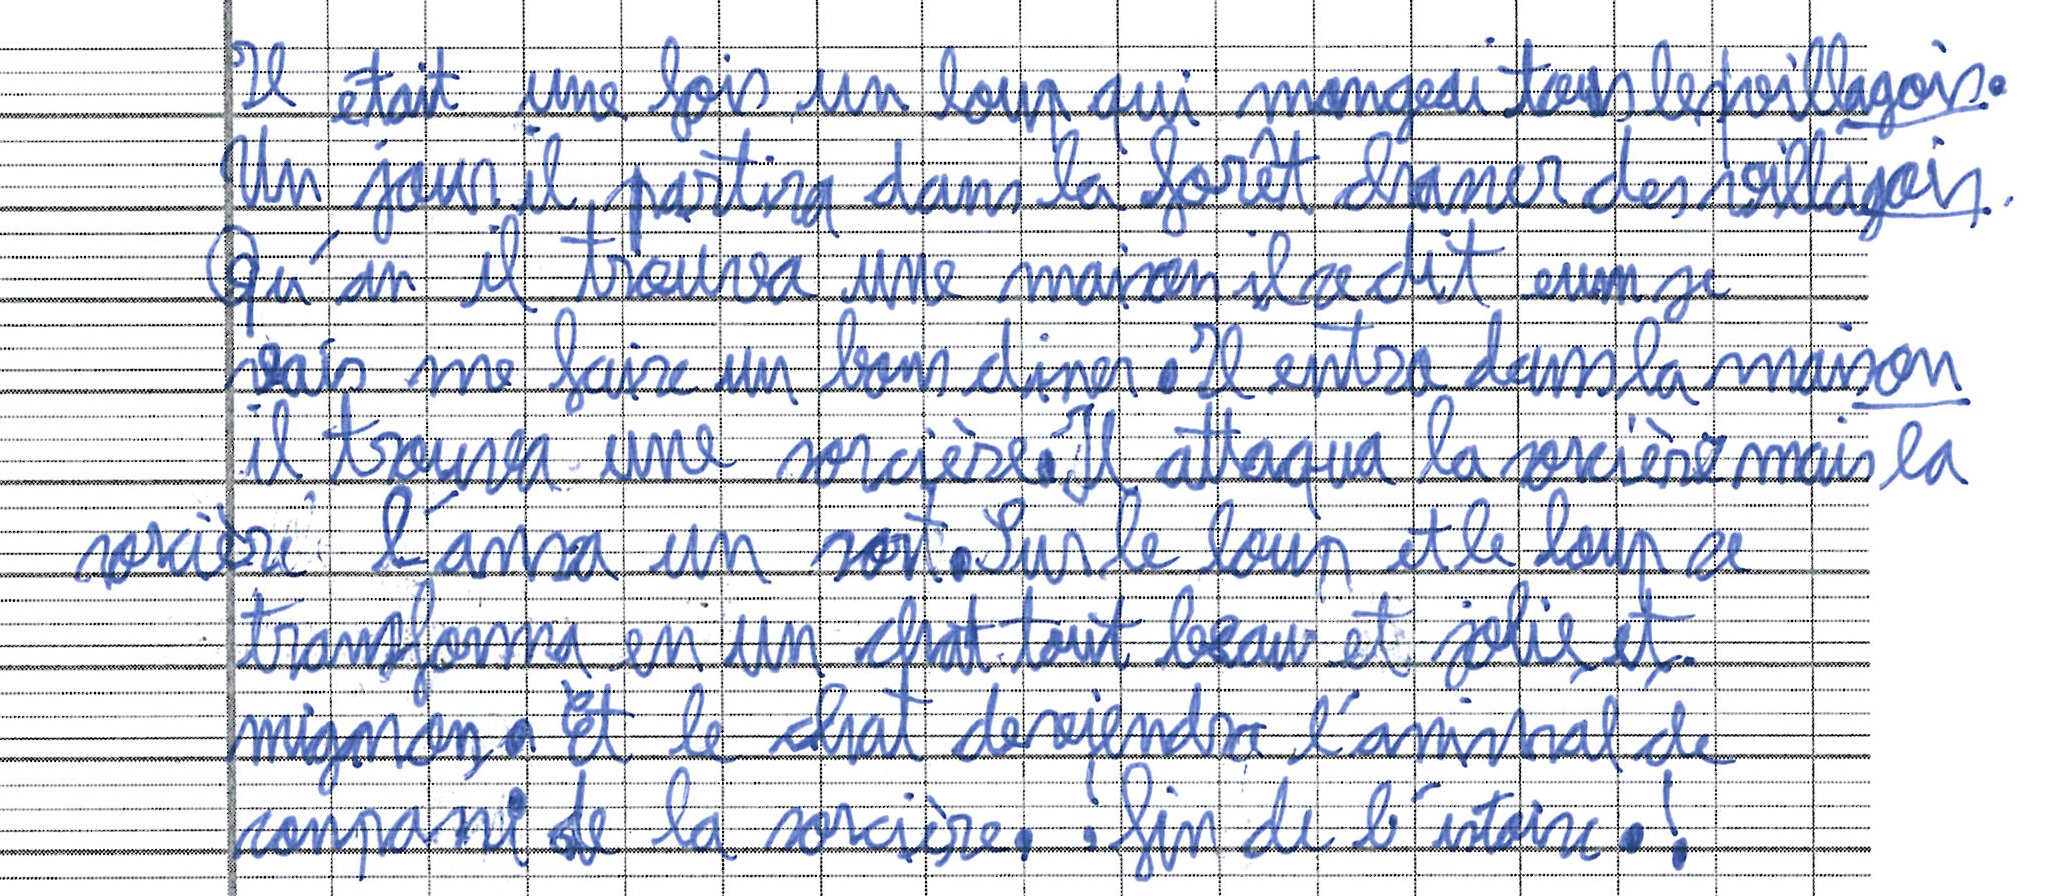 Il était une fois un loup qui mangeai tous les villagois.
Un jour il partira dans la forêt chaser des villagois.
Qu'an il trouva une maison il se dit eum je
vais me faire un bon diner. Il entra dans la maison
il trouva une sorcière. Il attaqua la sorcière mais la
sorcière l'ansa un sort. Sur le loup et le loup se
transforma en un chat tout beau et jolie, et.
mignon. Et le chat deviendra l'animal de
conpani de la sorcière. fin de l'istoire.!